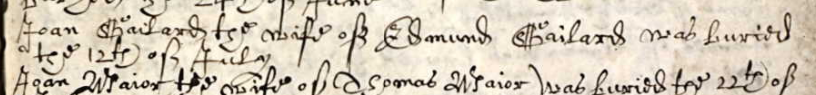 the 24th of June
Joan Gailard the wife of Edmund Gailard was buried
the 12th of July
Joan Maior the wife of Thomas Maior was buried the 22th of